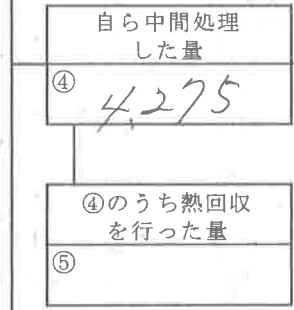 自ら中間処理
した量
④
4,275
④のうち熱回収
を行った量
⑤